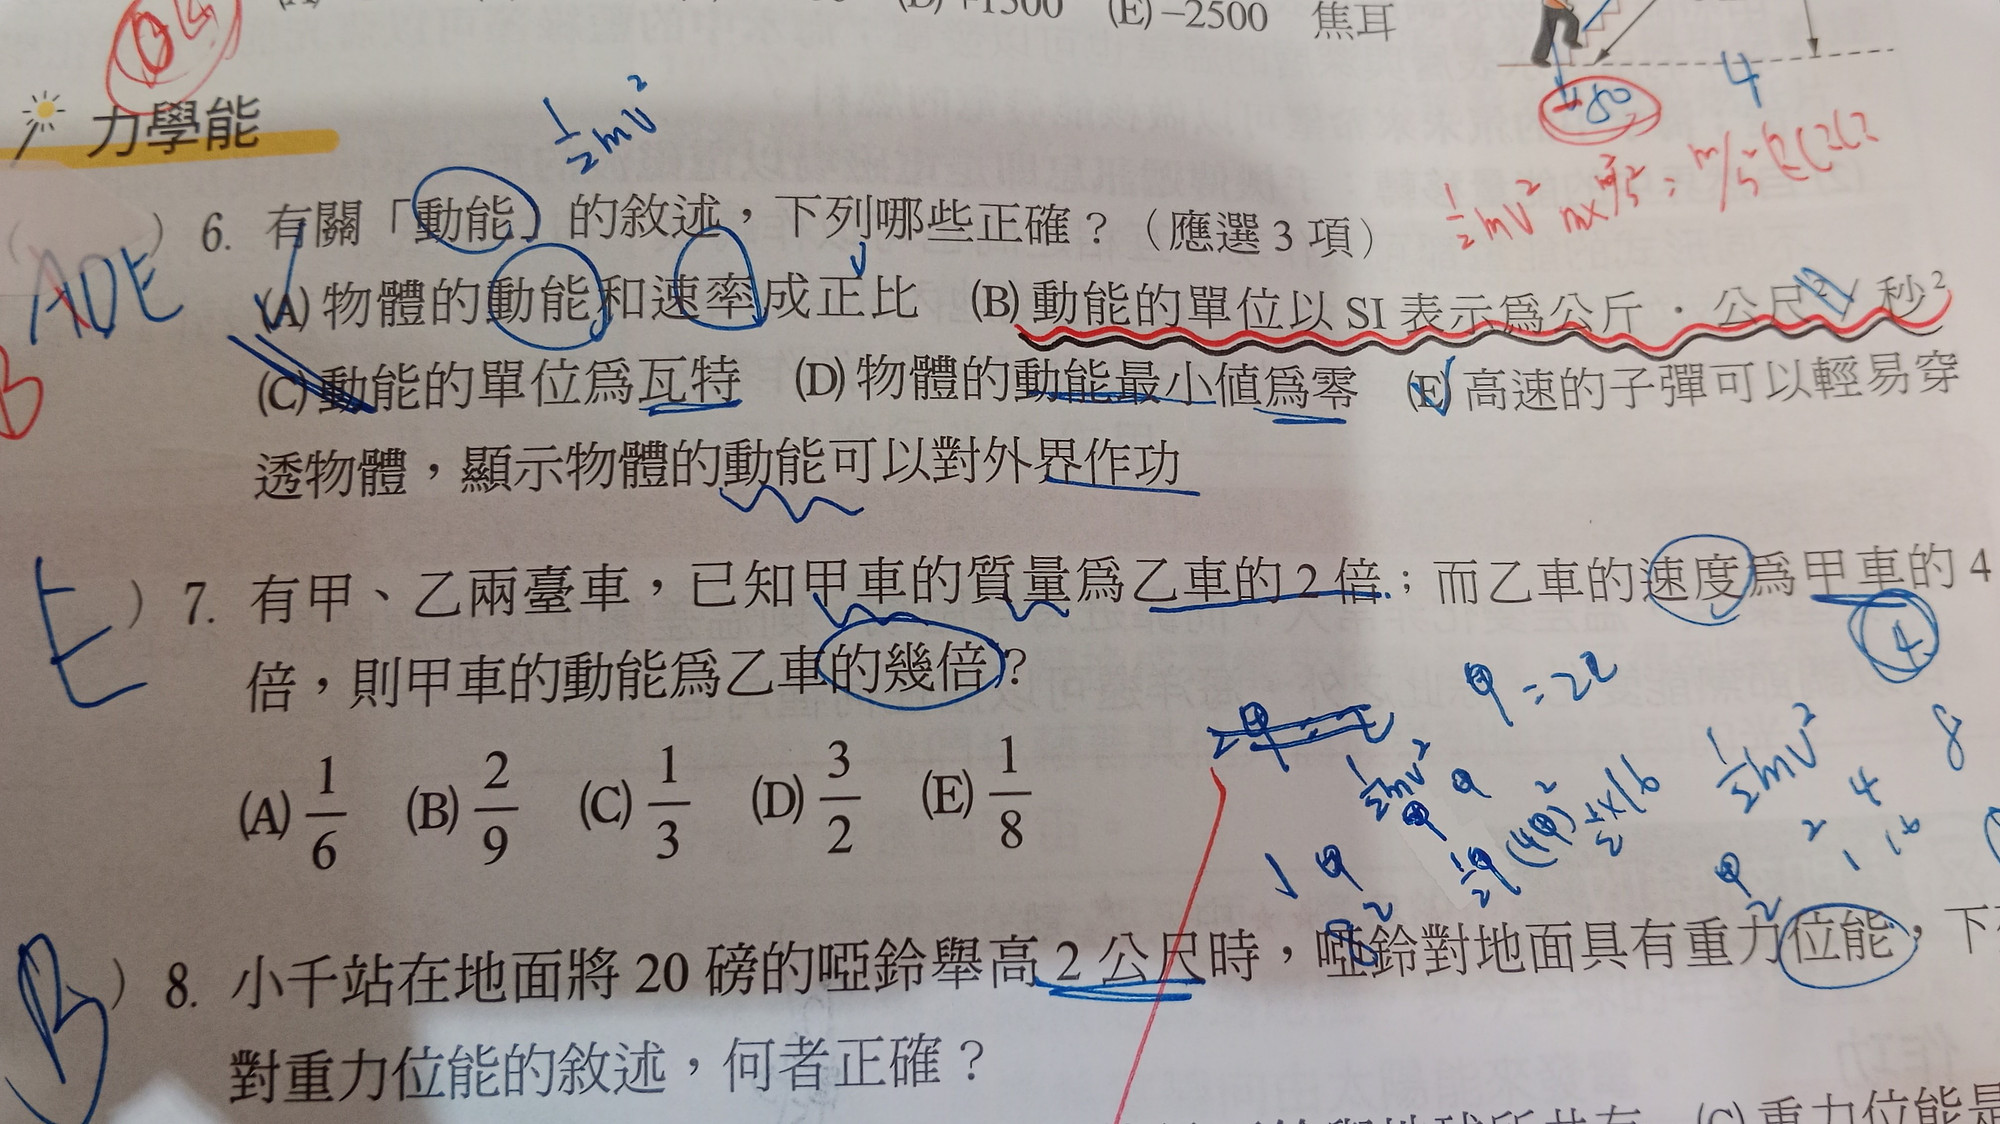 (D) +1500 (E) −2500 焦耳
力學能
½mv²
−80
4
½mv²
) 6. 有關「動能」的敘述，下列哪些正確？（應選 3 項）
ADE
(A) 物體的動能和速率成正比 (B) 動能的單位以 SI 表示為公斤．公尺²／秒²
B
(C) 動能的單位為瓦特 (D) 物體的動能最小值為零 (E) 高速的子彈可以輕易穿
透物體，顯示物體的動能可以對外界作功
E
) 7. 有甲、乙兩臺車，已知甲車的質量為乙車的 2 倍；而乙車的速度為甲車的 4
倍，則甲車的動能為乙車的幾倍？
4
(A) 1/6 (B) 2/9 (C) 1/3 (D) 3/2 (E) 1/8
½mv²
½mv²
8
B
) 8. 小千站在地面將 20 磅的啞鈴舉高 2 公尺時，啞鈴對地面具有重力位能，下
對重力位能的敘述，何者正確？
(C) 重力位能是